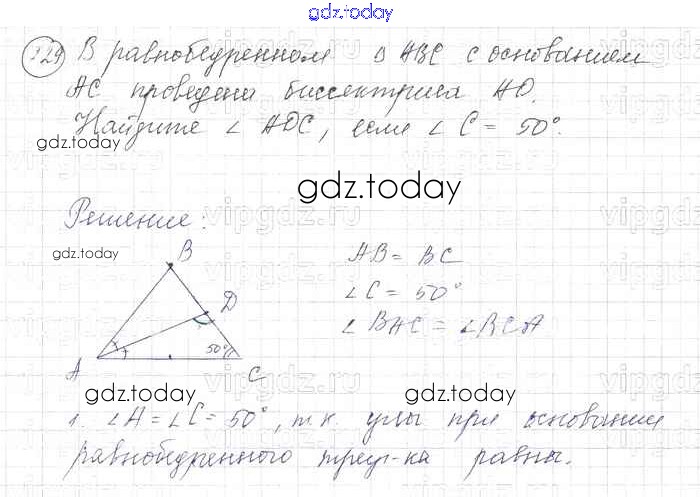 gdz.today
229 В равнобедренном △ ABC с основанием
AC проведена биссектриса AD.
Найдите ∠ ADC, если ∠ C = 50°.
gdz.today
gdz.today
Решение:
gdz.today
B
AB = BC
∠C = 50°
D
∠BAC = ∠BCA
50°
A
C
gdz.today
gdz.today
1. ∠A = ∠C = 50°, т.к. углы при основании
равнобедренного треуг-ка равны.